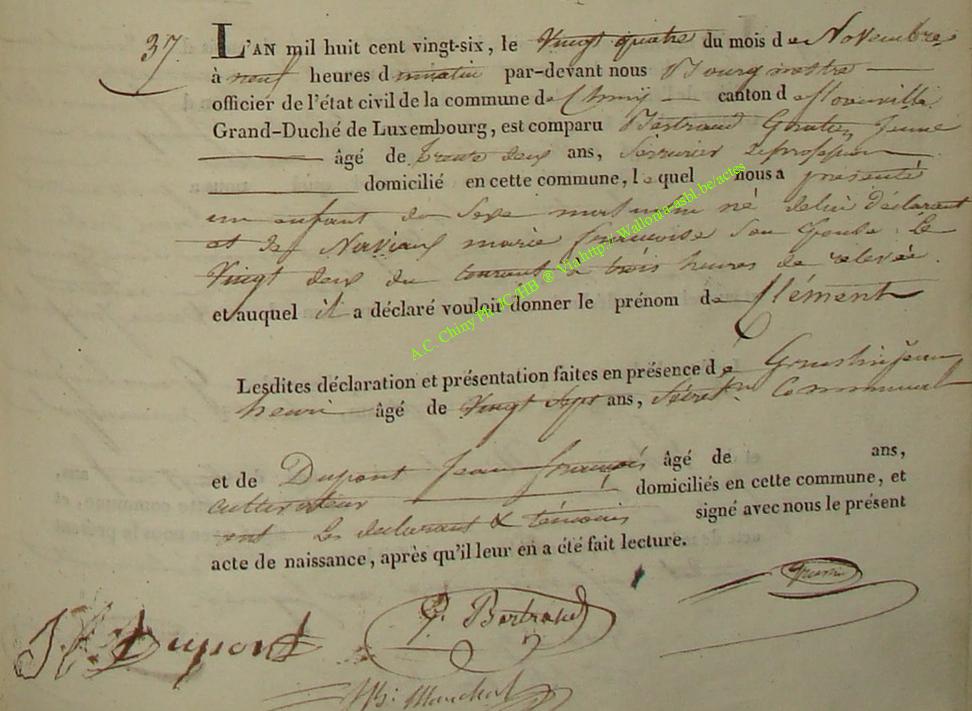 37.
L'AN mil huit cent vingt-six, le Vingt quatre du mois de Novembre
à neuf heures d matin par-devant nous Bourgmestre
officier de l'état civil de la commune de Chiny canton de florenville
Grand-Duché de Luxembourg, est comparu Bertrand jeune
âgé de trente deux ans, Serrurier de profession
domicilié en cette commune, lequel nous a présenté
un enfant du Sexe masculin né de lui déclarant
et de marie françoise Son épouse Le
Vingt deux du courant à trois heures de relevée.
et auquel il a déclaré vouloir donner le prénom de Clément
Lesdites déclaration et présentation faites en présence de jean
henri âgé de Vingt Sept ans, Secret. Communal
et de Dupont jean françois âgé de ans,
cultivateur domiciliés en cette commune, et
ont Les declarant & témoins signé avec nous le présent
acte de naissance, après qu'il leur en a été fait lecture.
Dupont
G. Bertrand
A.C. Chiny Ph JC HB ® Via http://Wallonia-asbl.be/actes